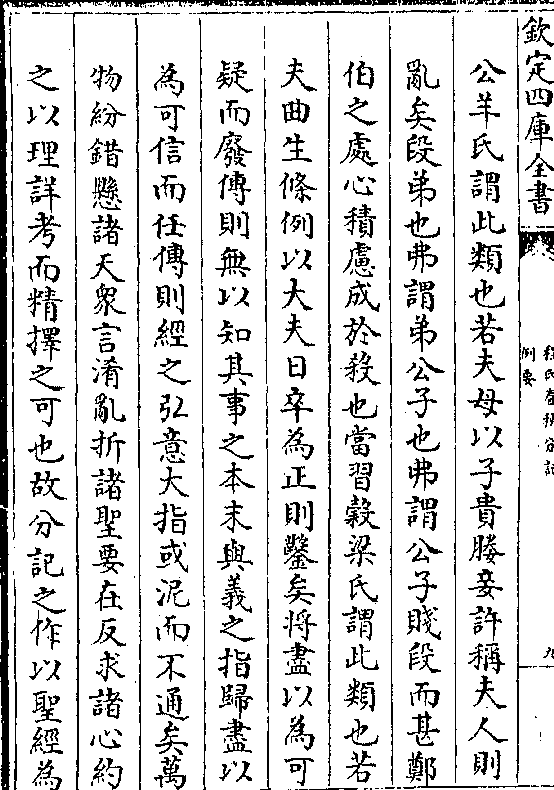 欽定四庫全書
程氏春秋分記
例要
九
公羊氏謂此類也若夫母以子貴媵妾許稱夫人則
亂矣段弟也弗謂弟公子也弗謂公子賤段而甚鄭
伯之處心積慮成於殺也當習穀梁氏謂此類也若
夫曲生條例以大夫日卒為正則鑿矣將盡以為可
疑而廢傳則無以知其事之本末與義之指歸盡以
為可信而任傳則經之弘意大指或泥而不通矣萬
物紛錯懸諸天衆言淆亂折諸聖要在反求諸心約
之以理詳考而精擇之可也故分記之作以聖經為